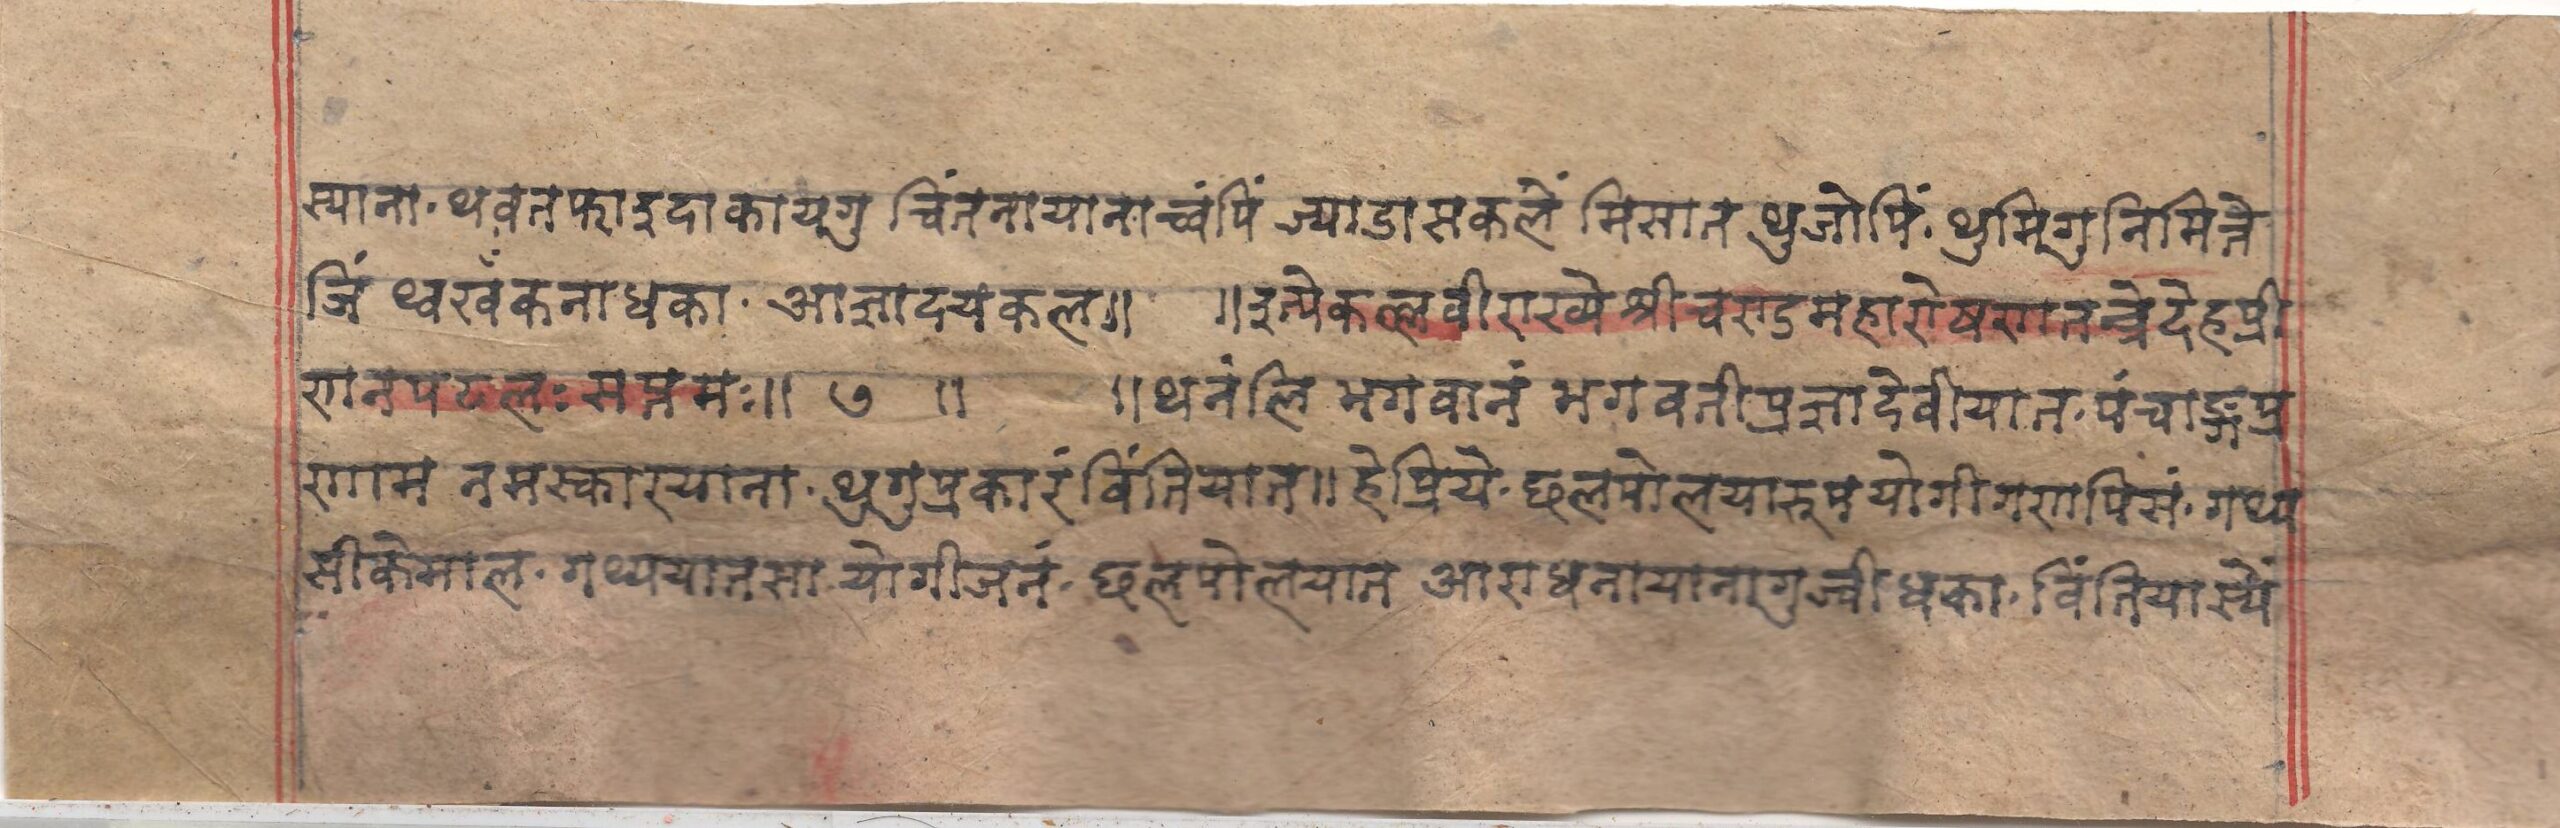 स्याना॰ थवतफाइदाकायगु चिंतनायानाच्वंपिं ज्याडासकलें मिसात थुजोपिं॰ थुमिगुनिमित्तें
जिं थ्वखँकनाधका॰ आज्ञादयकल॥ ॥इत्येकल्लवीराख्ये श्रीचण्डमहारोषणतन्त्रे देहप्री
णनपटलः सप्तमः॥ ७ ॥ ॥थनंलि भगवानं भगवतीप्रज्ञादेवीयात॰ पंचाङ्गप्र
णाम नमस्कारयाना॰ थुगुप्रकारं विंतियात॥ हेप्रिये॰ छलपोलयारूप योगीगणपिसं॰ गथ्य
सीकेमाल॰ गथ्ययातसा योगीजनं॰ छलपोलयात आराधनायानागुज्वीधका॰ विंतियास्यें